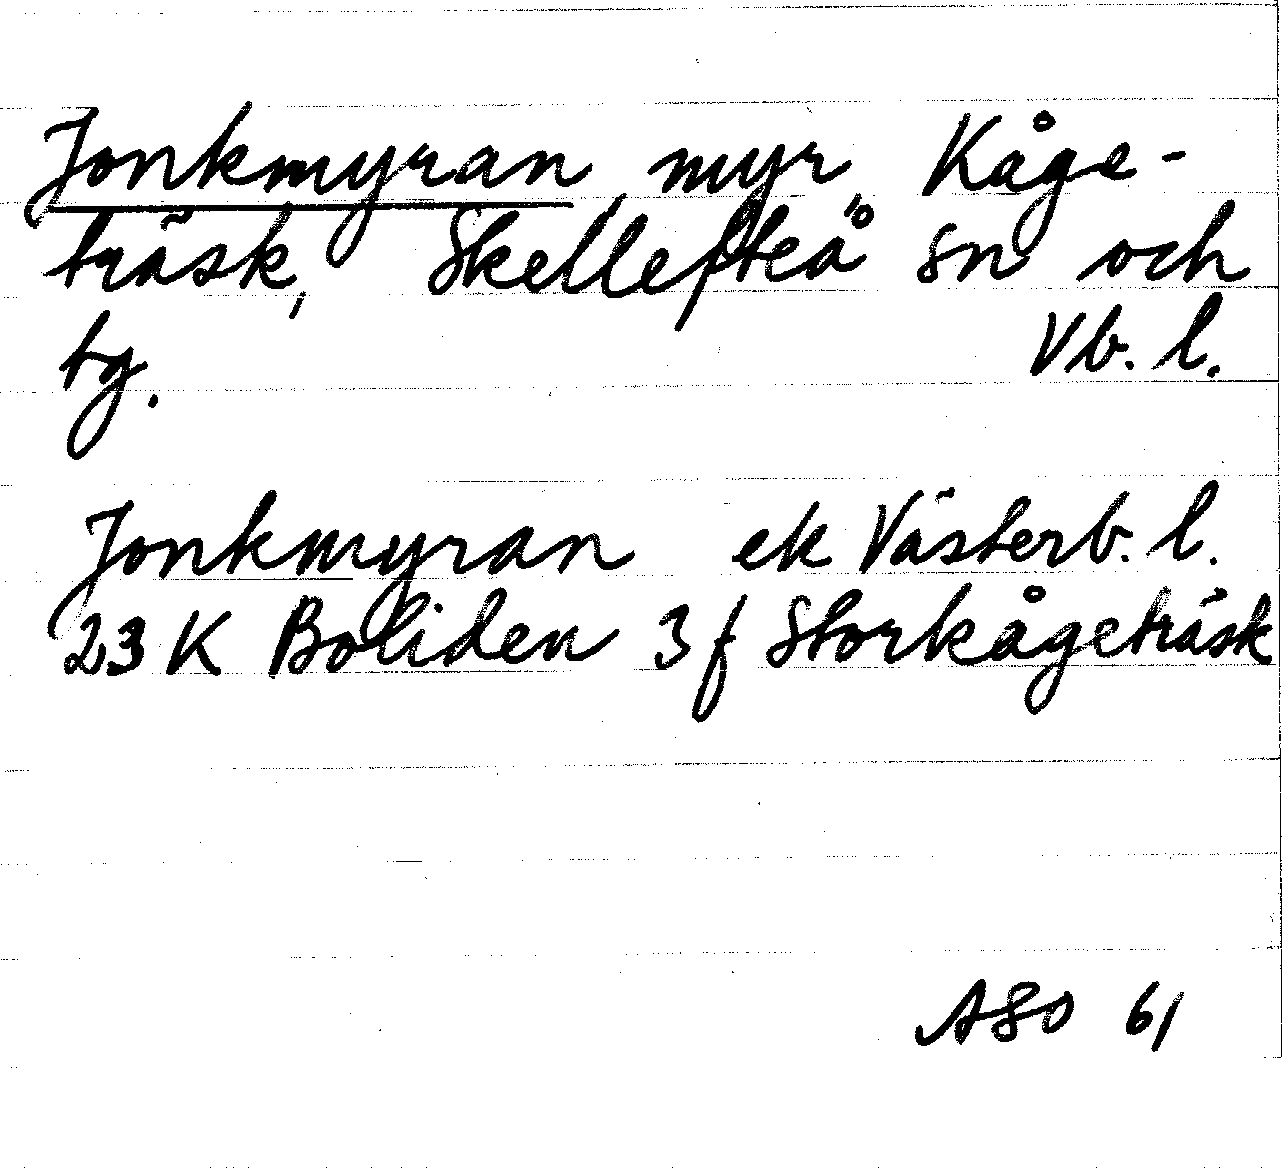 Jonkmyran, myr, Kåge-
träsk, Skellefteå sn och
tg. Vb. l.
Jonkmyran ek Västerb. l.
23 K Boliden 3 f Storkågeträsk
ASO 61